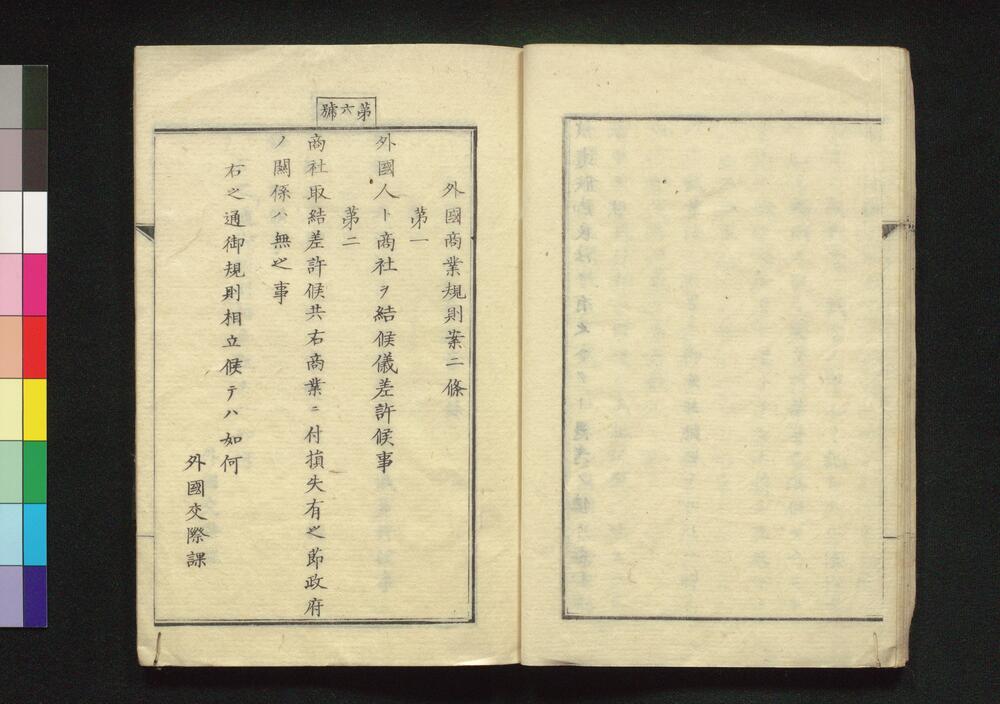 第六號
外國商業規則案二條
第一
外國人ト商社ヲ結候儀差許候事
第二
商社取結差許候共右商業ニ付損失有之節政府
ノ關係ハ無之事
右之通御規則相立候テハ如何
外國交際課